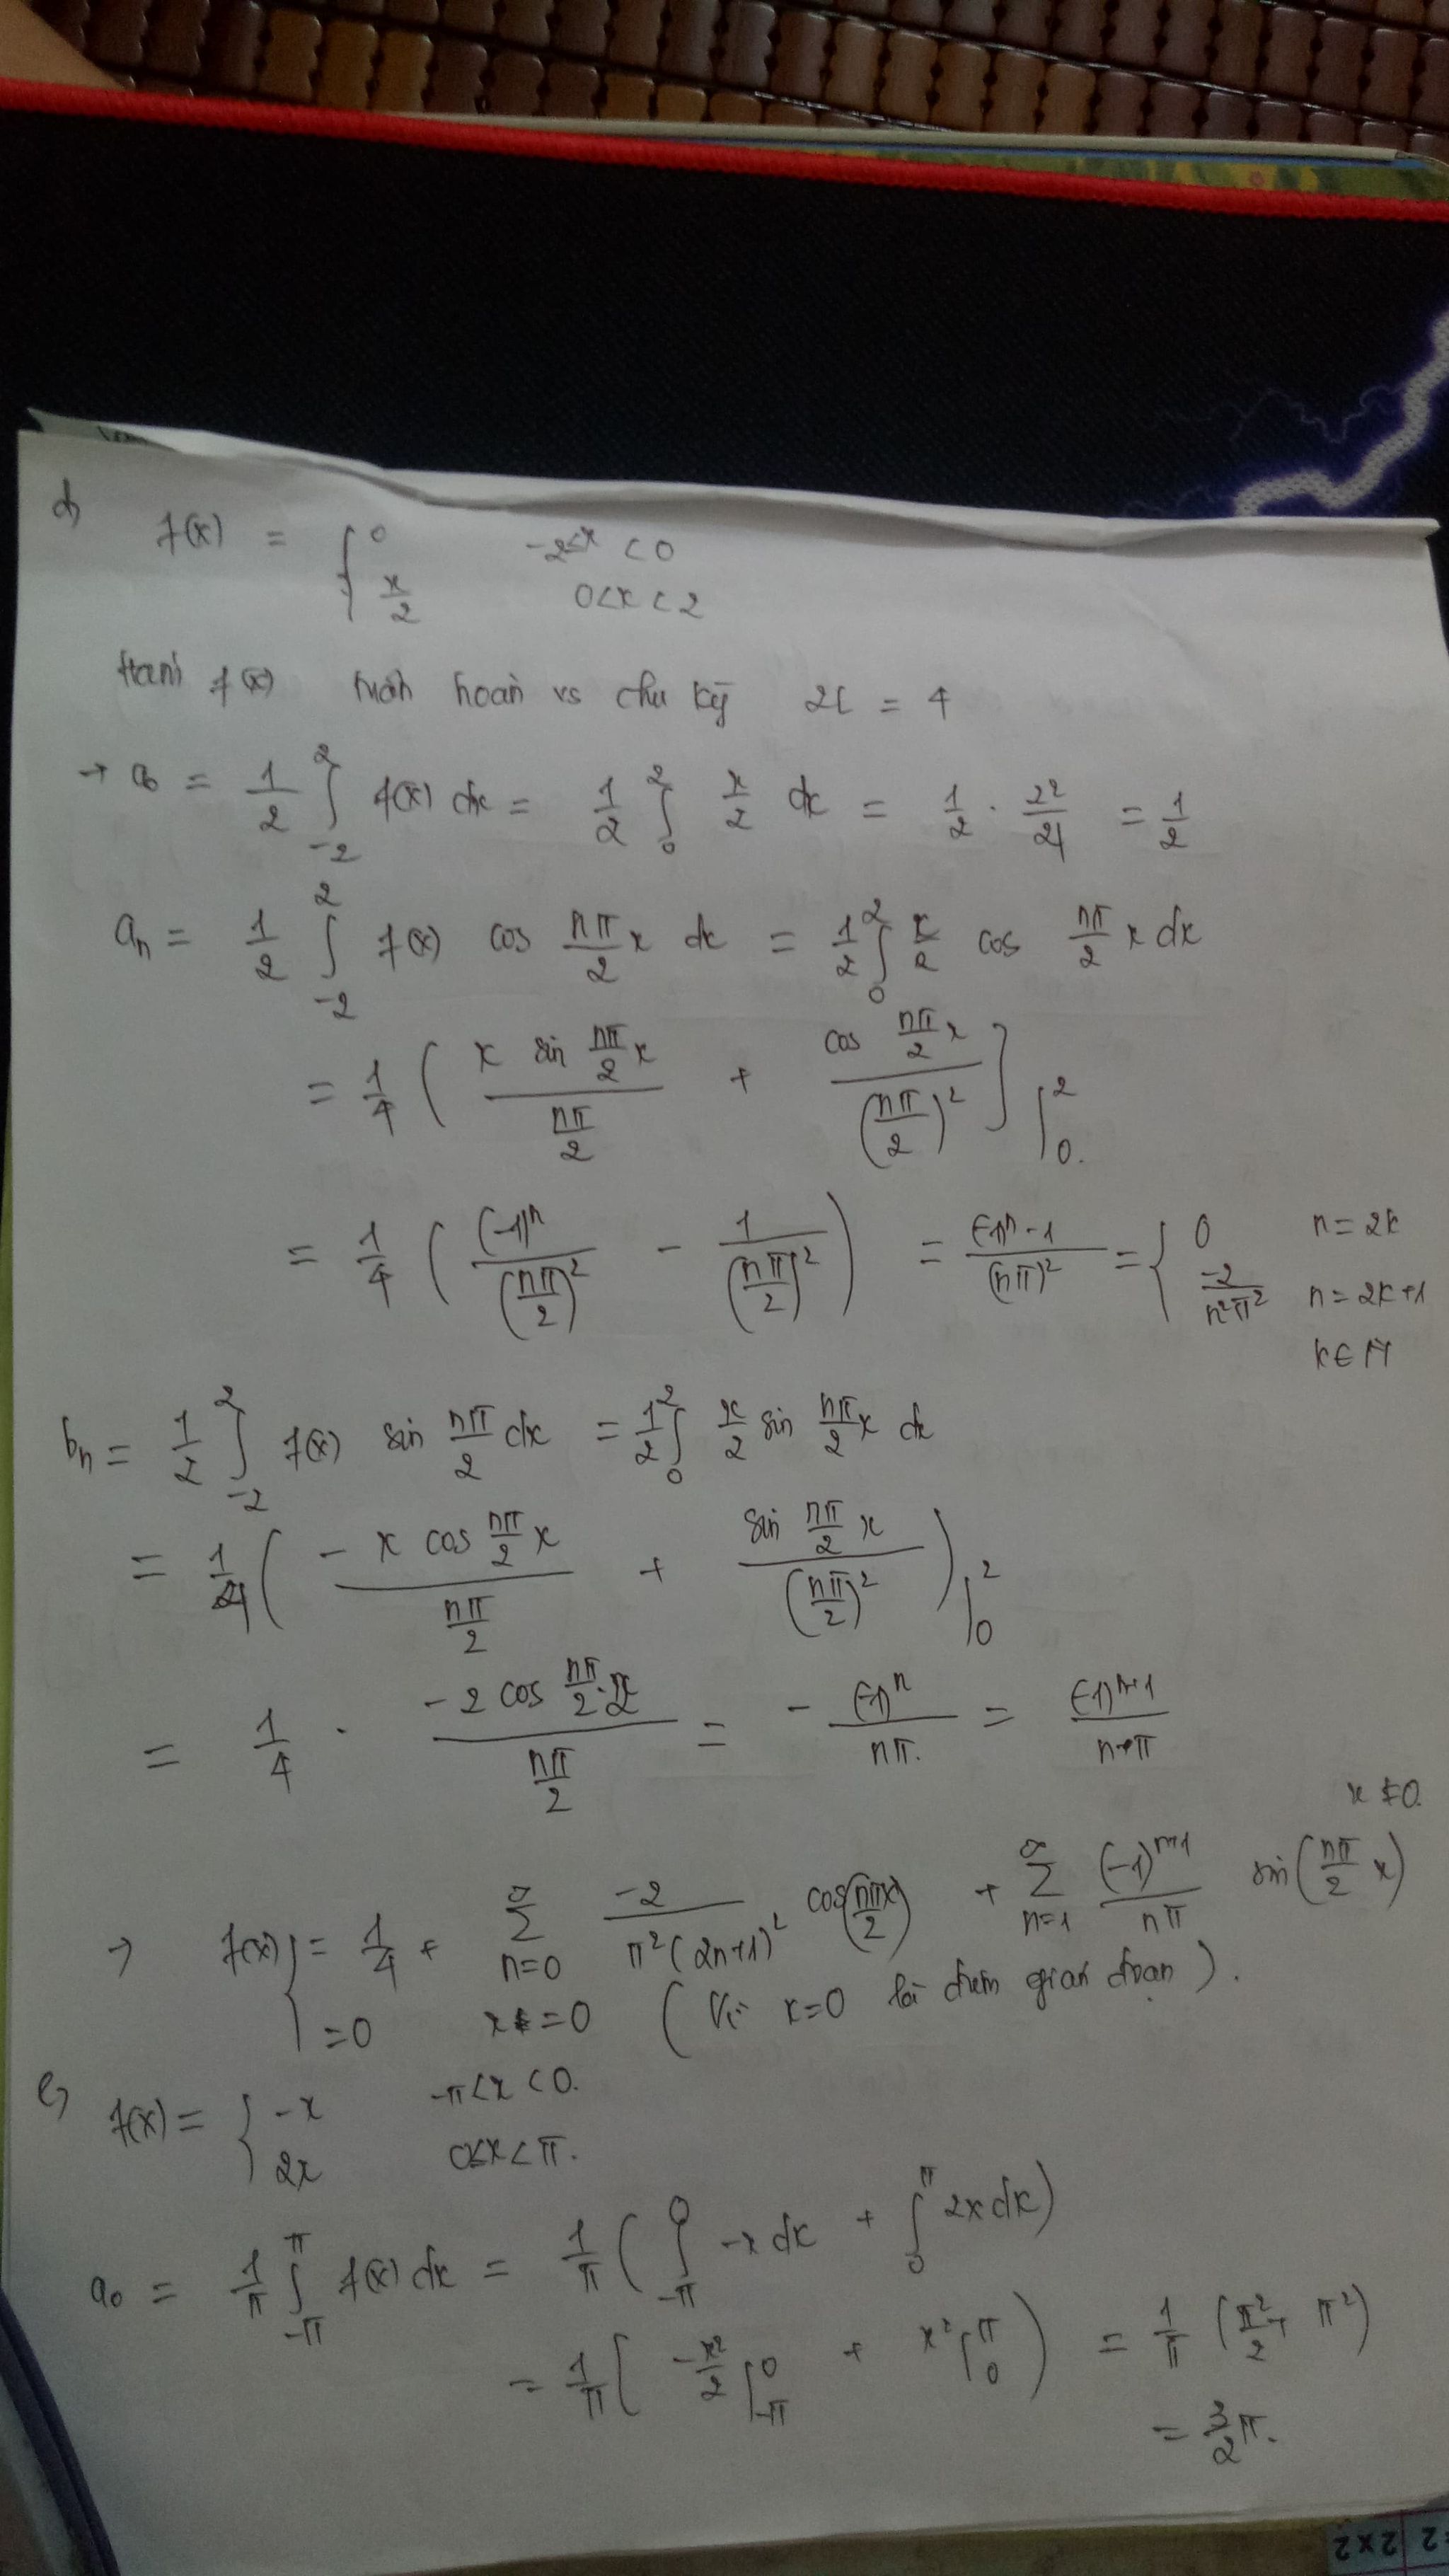 d) f(x) = { 0 -2<x<0
x/2 0<x<2
f(x) tuần hoàn vs chu kỳ 2l = 4
→ a₀ = 1/2 ∫_{-2}^{2} f(x) dx = 1/2 ∫_0^2 x/2 dx = 1/2 · 2²/4 = 1/2
aₙ = 1/2 ∫_{-2}^{2} f(x) cos nπ/2 x dx = 1/2 ∫_0^2 x/2 cos nπ/2 x dx
= 1/4 ( x sin nπ/2 x / (nπ/2) + cos nπ/2 x / (nπ/2)² ) |_0^2.
= 1/4 ( (-1)ⁿ / (nπ/2)² - 1 / (nπ/2)² ) = ((-1)ⁿ - 1) / (nπ)² = { 0 n = 2k
-2 / n²π² n = 2k+1
k ∈ N
bₙ = 1/2 ∫_{-2}^{2} f(x) sin nπ/2 dx = 1/2 ∫_0^2 x/2 sin nπ/2 x dx
= 1/4 ( - x cos nπ/2 x / (nπ/2) + sin nπ/2 x / (nπ/2)² ) |_0^2
= 1/4 · -2 cos nπ/2 · 2 / (nπ/2) = - (-1)ⁿ / nπ. = (-1)ⁿ⁺¹ / nπ
x ≠ 0.
→ f(x) { = 1/4 + Σ_{n=0}^{∞} -2 / π²(2n+1)² cos(nπx/2) + Σ_{n=1}^{∞} (-1)ⁿ⁺¹ / nπ sin(nπ/2 x)
= 0 x = 0 (Vì x=0 là điểm gián đoạn).
e) f(x) = { -x -π<x<0.
2x 0≤x<π.
a₀ = 1/π ∫_{-π}^{π} f(x) dx = 1/π ( ∫_{-π}^{0} -x dx + ∫_0^π 2x dx)
= 1/π ( -x²/2 |_{-π}^{0} + x² |_0^π ) = 1/π (π²/2 + π²)
= 3/2 π.
2 x 2